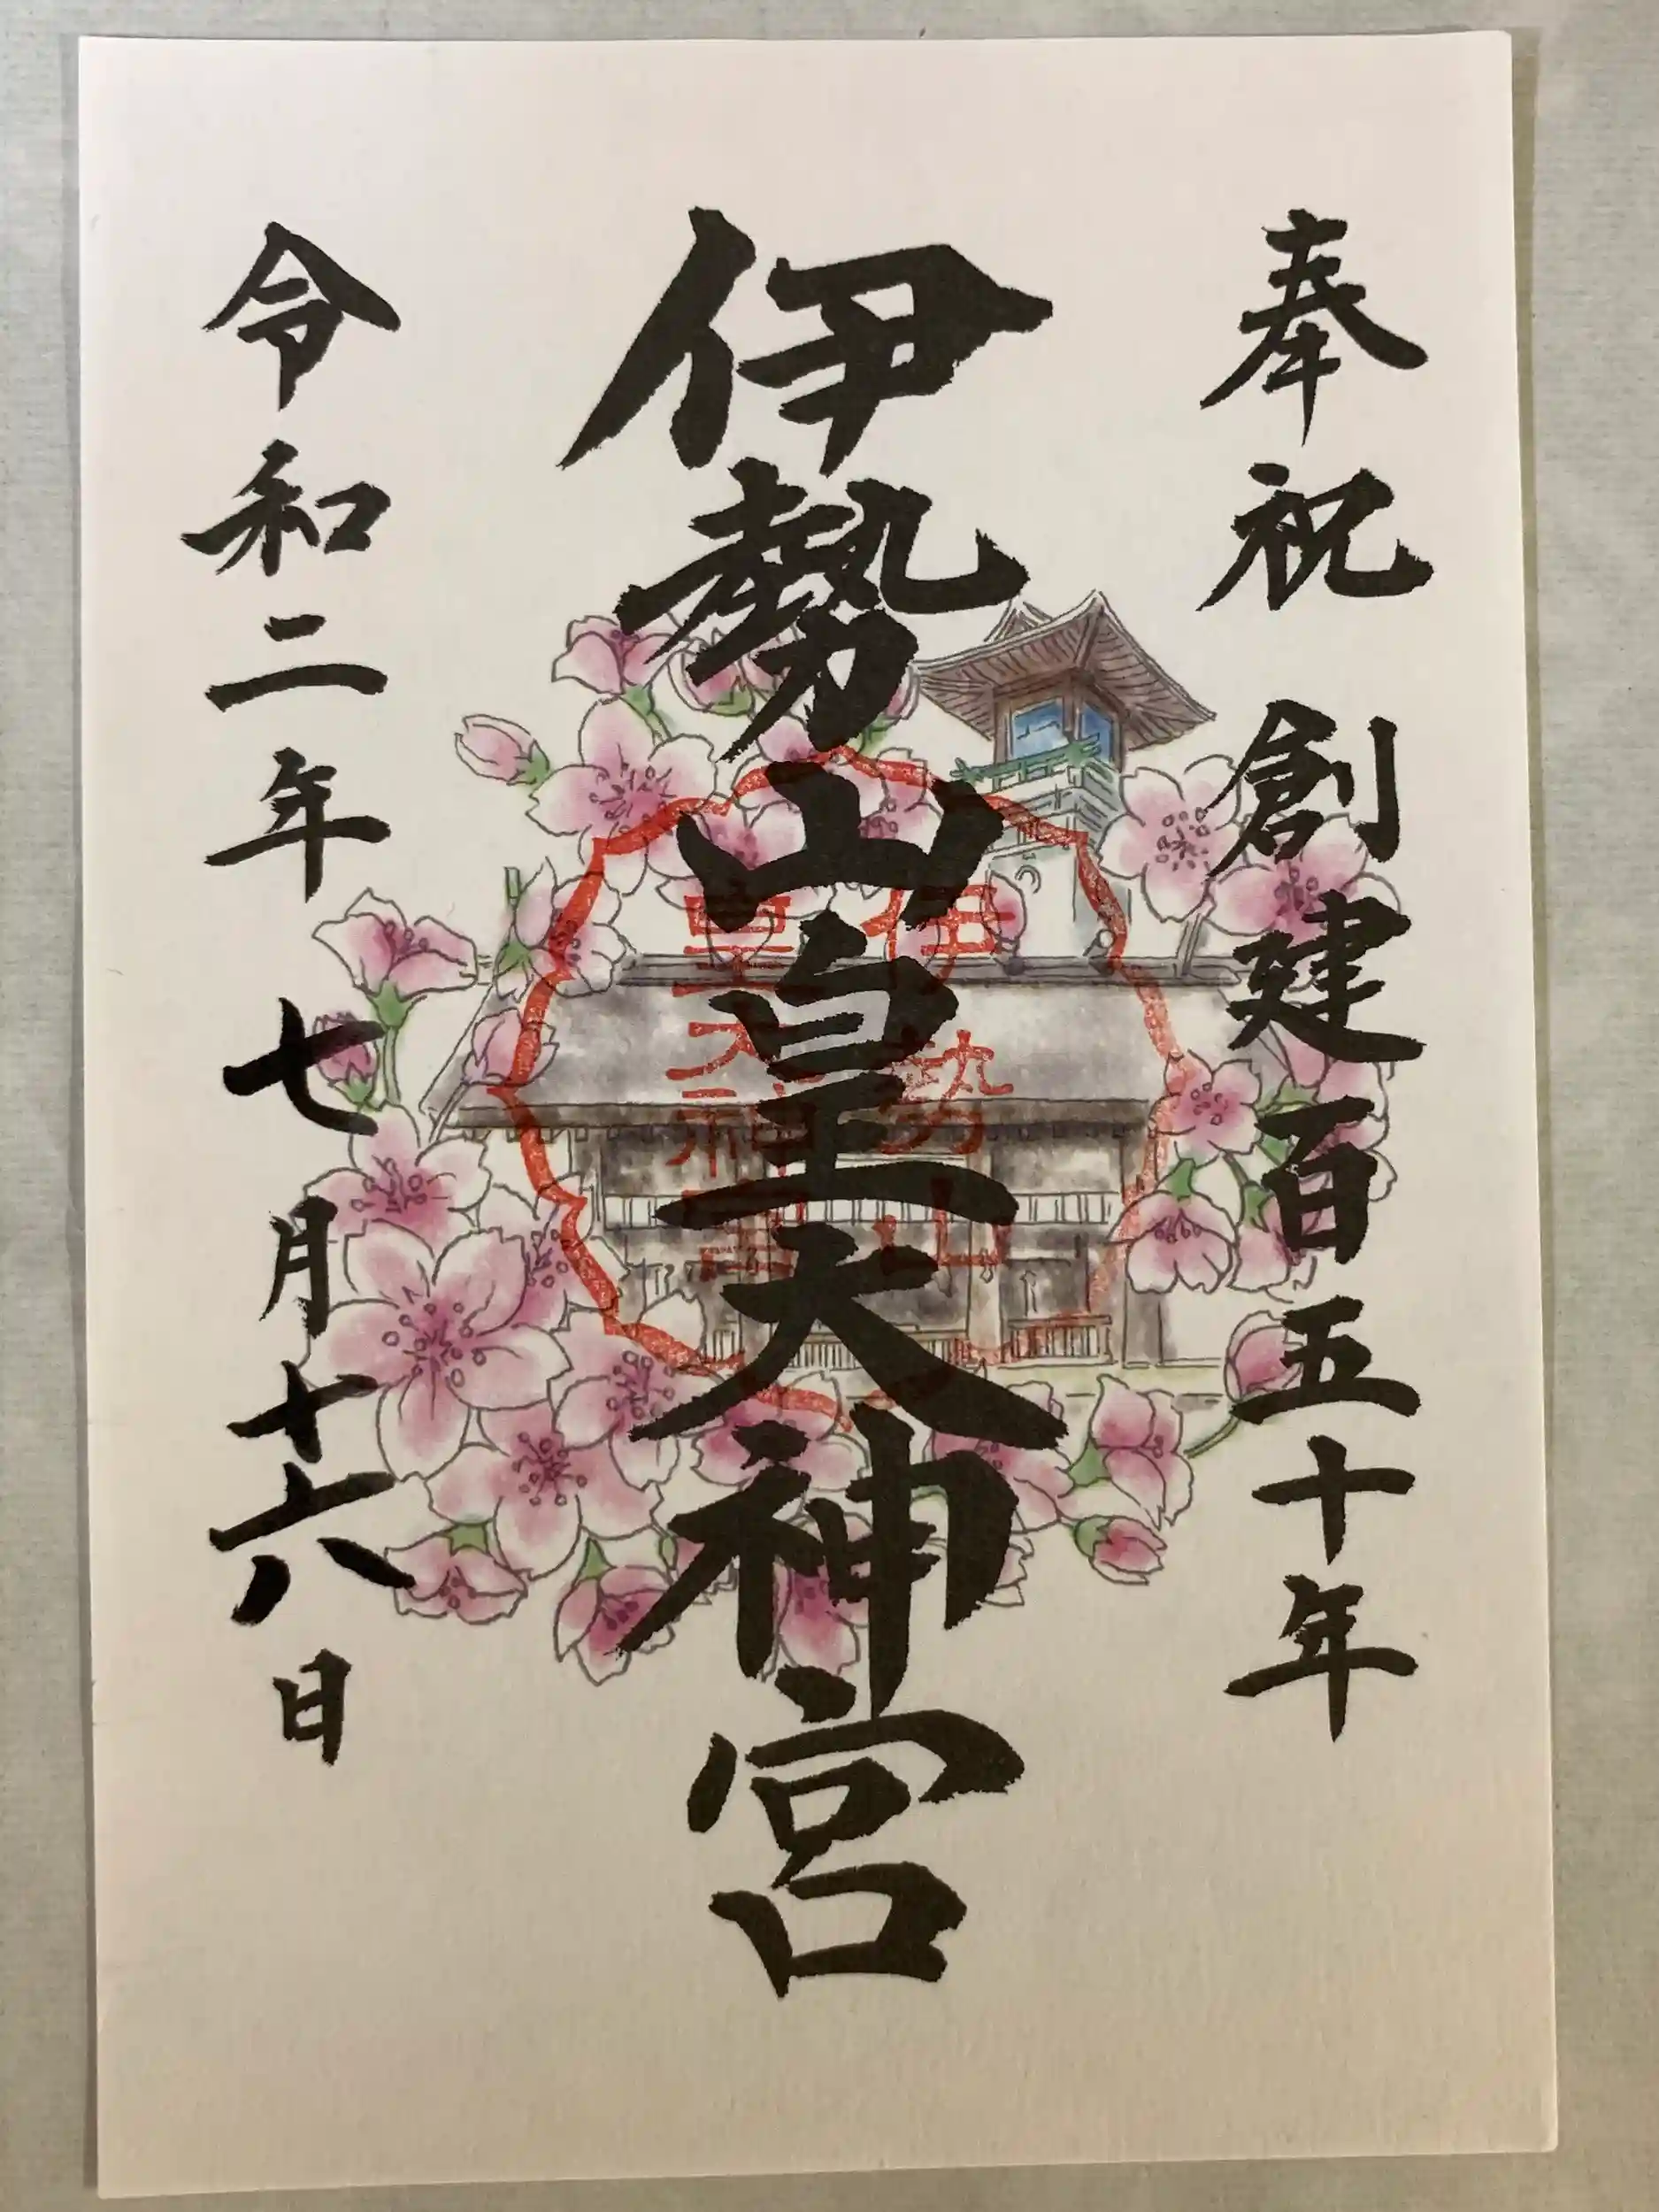 奉祝 創建百五十年
伊勢山皇大神宮
伊勢山
皇大神宮
令和二年七月十六日